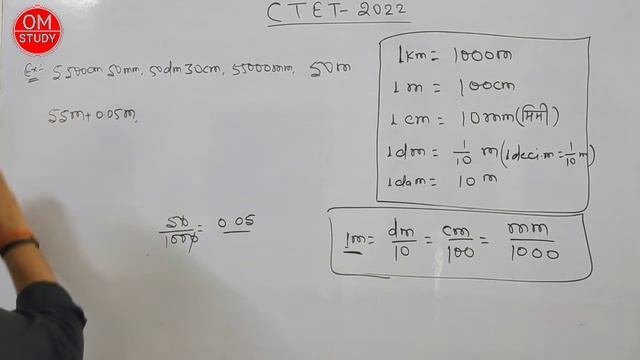 OM
STUDY
CTET-2022
Ex:- 5500cm 50mm, 50dm30cm, 55000mm, 50m
55m+0.05m,
50/1000 = 0.05
1km = 1000m
1m = 100cm
1cm = 10mm(मिमी)
1dm = 1/10 m(1deci.m=1/10 m)
1dam = 10m
1m = dm/10 = cm/100 = mm/1000